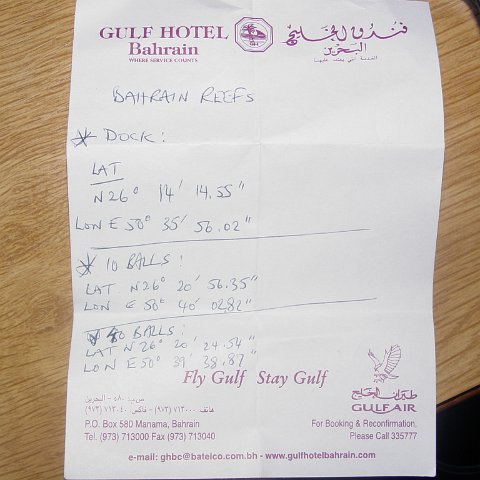 GULF HOTEL
Bahrain
WHERE SERVICE COUNTS
فندق الخليج
البحرين
BAHRAIN REEFS
* DOCK:
LAT
N26° 14' 14.55"
LON E 50° 35' 56.02"
* 10 BALLS:
LAT. N26° 20' 56.35"
LON E 50° 40' 02.82"
BALLS:
LAT N 26° 20' 24.54"
LON E50° 39' 38.87"
Fly Gulf Stay Gulf
ص.ب: ٥٨٠ - البحرين
هاتف: ٧١٣٠٠٠ (٩٧٣) - فاكس: ٧١٣٠٤٠ (٩٧٣)
P.O. Box 580 Manama, Bahrain
Tel. (973) 713000 Fax (973) 713040
طيران الخليج
GULF AIR
For Booking & Reconfirmation,
Please Call 335777
e-mail: ghbc@batelco.com.bh - www.gulfhotelbahrain.com